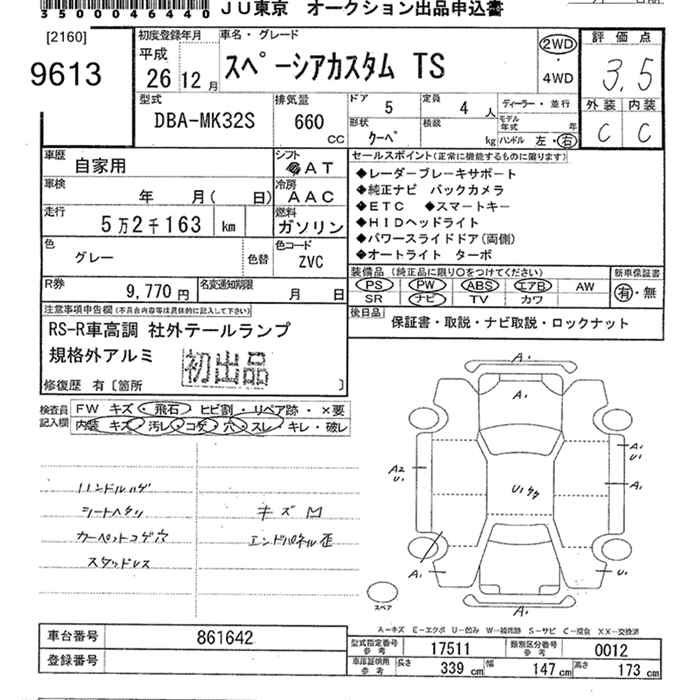 3500046440 JU東京 オークション出品申込書
[2160]
9613
初度登録年月 平成 26 12月
車名・グレード
スペーシアカスタム TS
2WD ・ 4WD
評価点
3.5
外装 内装
C C
型式 DBA-MK32S
排気量 660 CC
ドア 5
定員 4 人
形状 クーペ
積載 kg
ディーラー・並行
モデル年式 年
ハンドル 左・右
車歴 自家用
シフト AT
車検 年 月( 日)
冷房 AAC
走行 5万2千163 km
燃料 ガソリン
色 グレー 色替
色コード ZVC
R券 9,770円
名変通知期限 月 日
セールスポイント(正常に機能するものに限ります)
◆レーダーブレーキサポート
◆純正ナビ バックカメラ
◆ETC ◆スマートキー
◆HIDヘッドライト
◆パワースライドドア(両側)
◆オートライト ターボ
装備品(純正品に限り○をつけてください)
PS PW ABS エアB AW
SR ナビ TV カワ
新車保証書
有・無
後日品 保証書・取説・ナビ取説・ロックナット
注意事項申告欄(不具合内容等は具体的に記入して下さい)
RS-R車高調 社外テールランプ
規格外アルミ
初出品
修復歴 有〔箇所 〕
検査員記入欄
FW キズ・飛石・ヒビ割・リペア跡・×要
内装 キズ・汚レ・コゲ・穴・スレ・キレ・破レ
ハンドルハゲ
シートヘタリ
カーペットコゲ穴
スタッドレス
キズ M
エンドパネル歪
A1
A1
A2
U1
A1
U1
A1
U1
A1
A1
U1
スペア
A-キズ E-エクボ U-凹み W-補修跡 S-サビ C-腐食 XX-交換済
車台番号 861642
登録番号
型式指定番号 参考 17511
類別区分番号 参考 0012
車庫証明用 参考 長さ 339 cm 幅 147 cm 高さ 173 cm